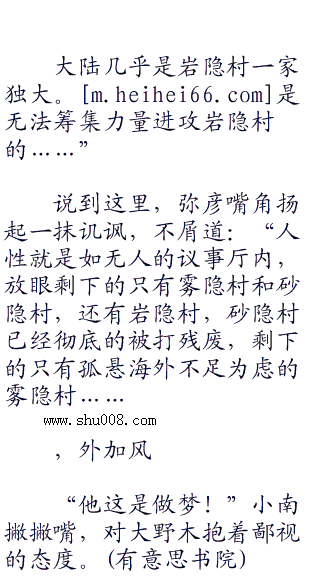 大陆几乎是岩隐村一家
独大。[m.heihei66.com]是
无法筹集力量进攻岩隐村
的……”
说到这里，弥彦嘴角扬
起一抹讥讽，不屑道：“人
性就是如无人的议事厅内，
放眼剩下的只有雾隐村和砂
隐村，还有岩隐村，砂隐村
已经彻底的被打残废，剩下
的只有孤悬海外不足为虑的
雾隐村……
www.shu008.com
，外加风
“他这是做梦！”小南
撇撇嘴，对大野木抱着鄙视
的态度。(有意思书院)